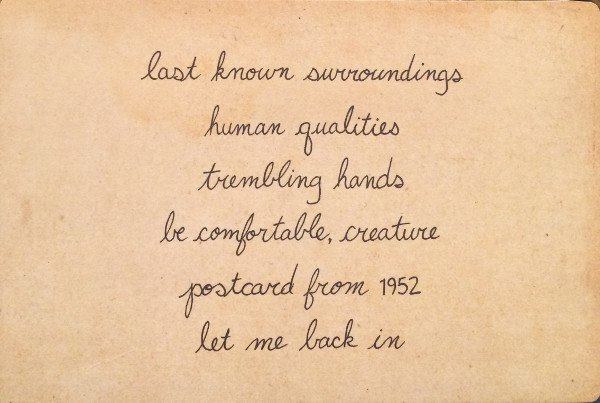 last known surroundings
human qualities
trembling hands
be comfortable, creature
postcard from 1952
let me back in